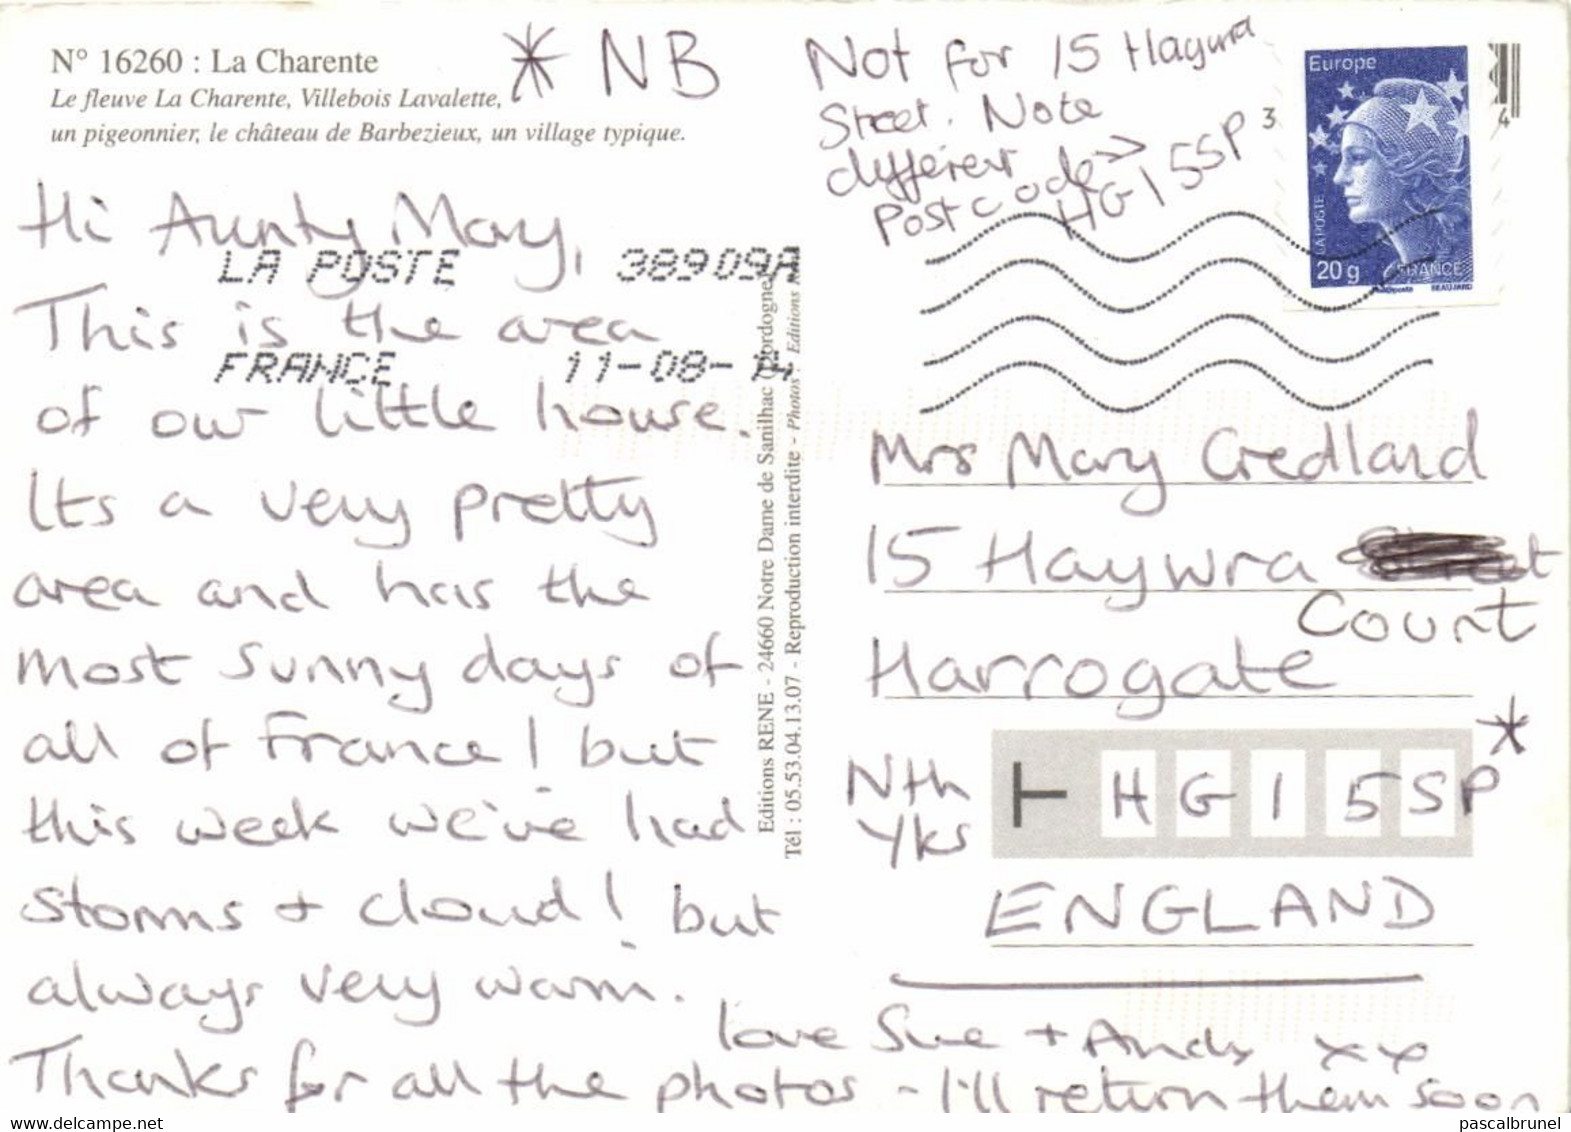 N° 16260 : La Charente
Le fleuve La Charente, Villebois Lavalette,
un pigeonnier, le château de Barbezieux, un village typique.
* NB
Not for 15 Haywra
Street. Note
different
Postcode →
HG1 5SP
3
4
Europe
LA POSTE
20g
FRANCE
Phil@poste
BEAUJARD
Hi Aunty Mary,
LA POSTE 38909A
This is the area
FRANCE 11-08-14
of our little house.
Its a very pretty
area and has the
most sunny days of
all of France! but
this week we've had
storms + cloud! but
always very warm.
Thanks for all the photos - I'll return them soon
love Sue + Andy xx
Editions RENE - 24660 Notre Dame de Sanilhac (Dordogne)
Tél : 05.53.04.13.07 - Reproduction interdite - Photos : Editions
Mrs Mary Credland
15 Haywra
Court
Harrogate
Nth
Yks
HG1 5SP*
ENGLAND
www.delcampe.net
pascalbrunel